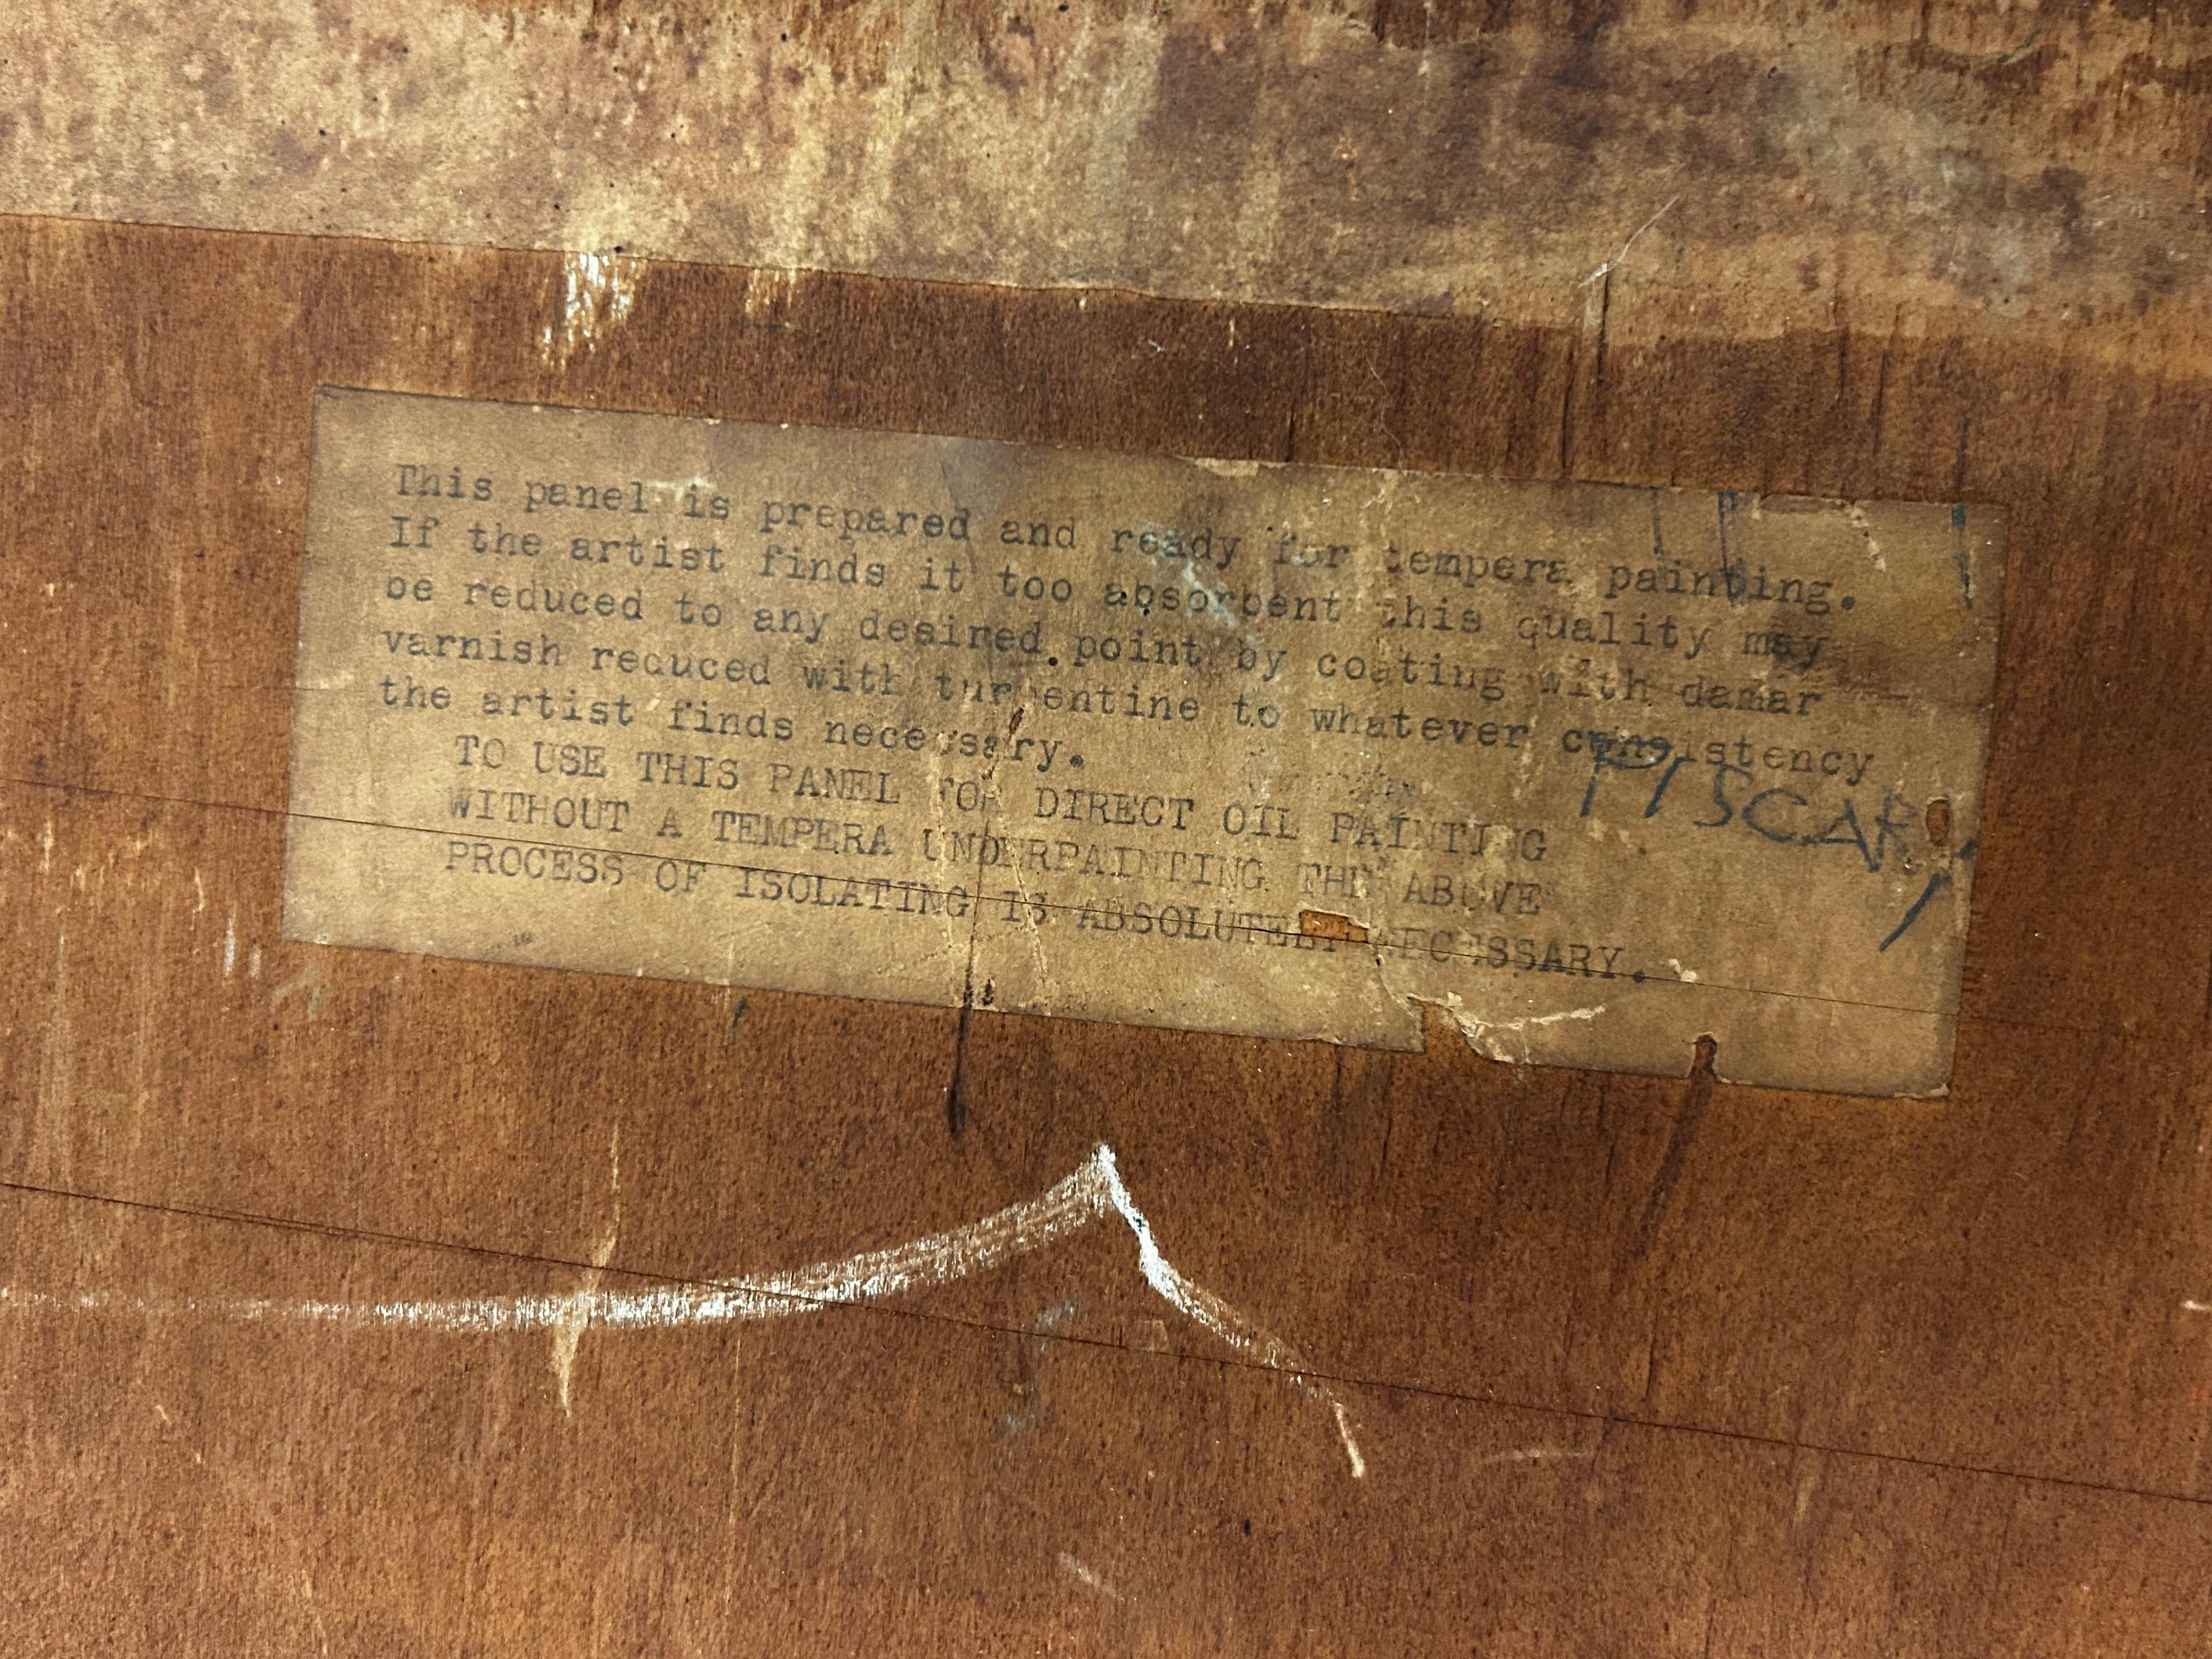 This panel is prepared and ready for tempera painting.
If the artist finds it too absorbent this quality may
be reduced to any desired point by coating with damar
varnish reduced with turpentine to whatever consistency
the artist finds necessary.
TO USE THIS PANEL FOR DIRECT OIL PAINTING
WITHOUT A TEMPERA UNDERPAINTING THE ABOVE
PROCESS OF ISOLATING IS ABSOLUTELY NECESSARY.